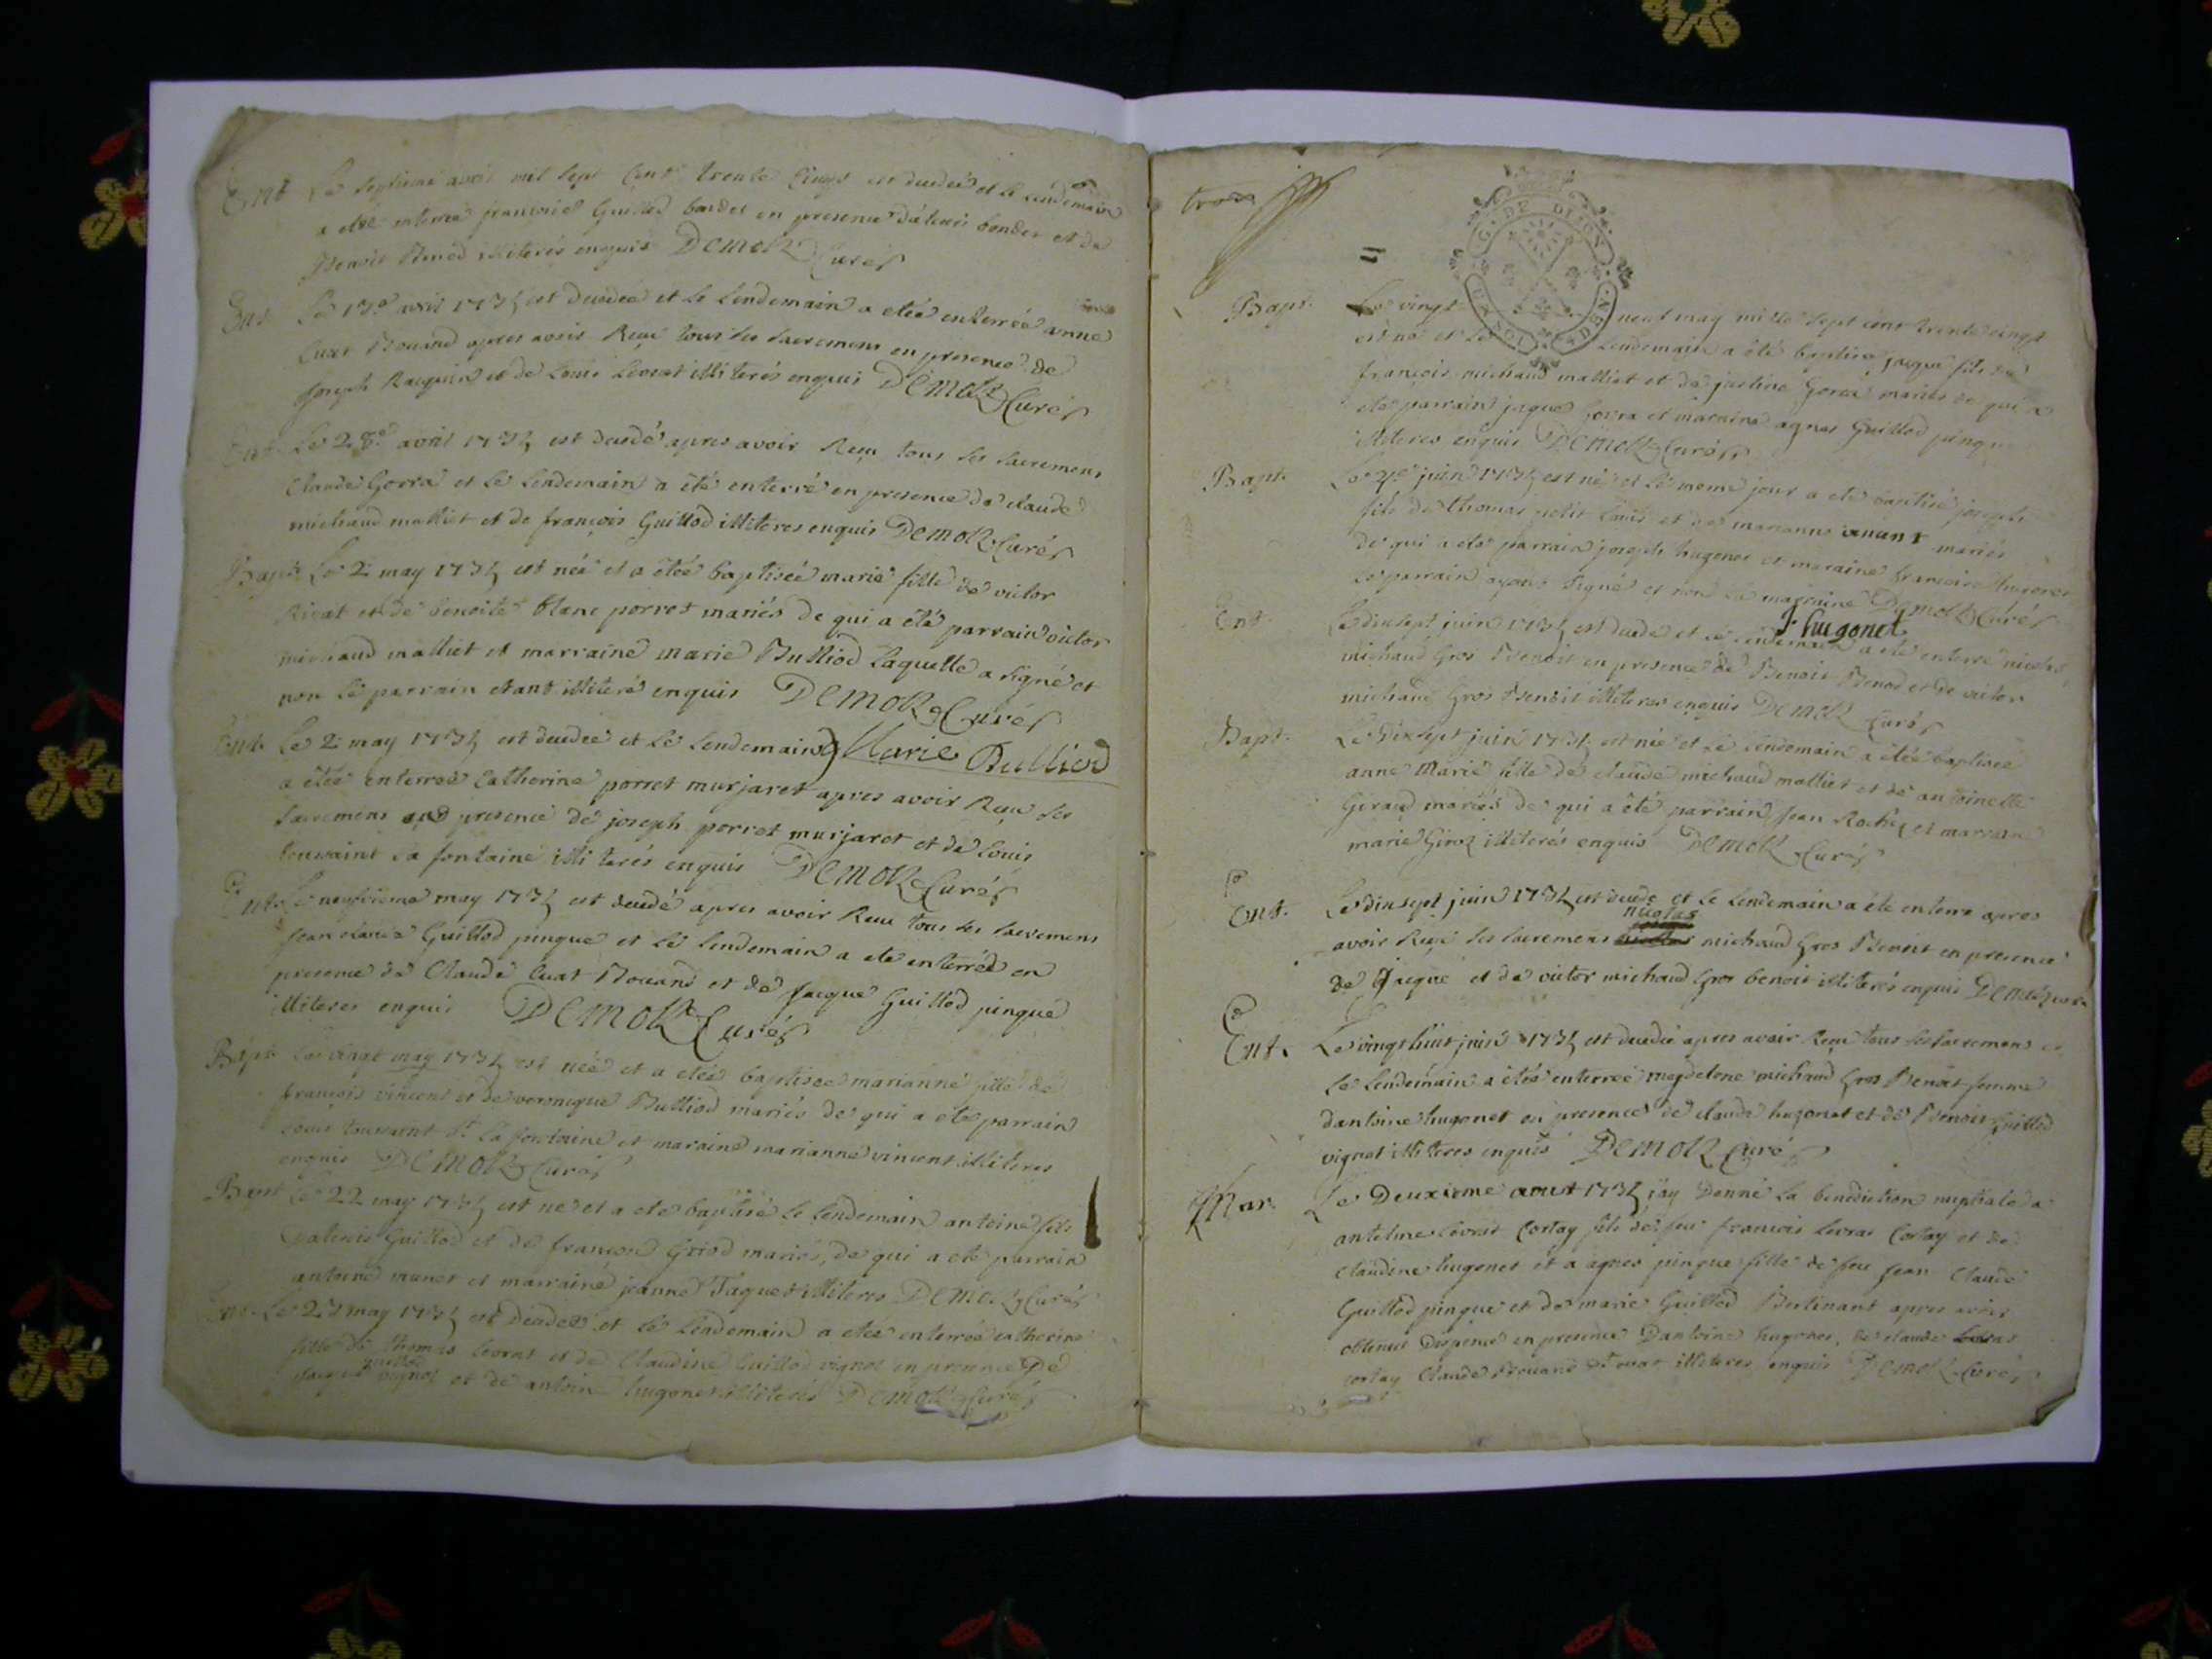 Ent Le septieme avril mil sept cent trente cinqt est decedeé et le lendemain
a etée enterreé francoise Guillod bardet en presence bonder et de
Benoit Benod illiterés enquis Demotz Curés
Ent Le 13e avril 1735 est decedeé et le lendemain a etéé enterréé anne
Cuat Bouand apres avoir Reçu tous ses sacremens en presence de
Joseph Racquin et de Louis Levrat illiterés enquis Demotz Curés
Ent Le 28e avril 1735 est decedé apres avoir Reçu tous ses sacremens
Claude Gorra et le lendemain a été enterré en presence de claude
michaud malliet et de françois Guillod illiteres enquis Demotz Curés
Bapt Le 2 may 1735 est néé et a étéé baptiséé marie fille de victor
Rivat et de benoite blanc porret mariés de qui a été parrain victor
michaud malliet et marraine marie Bulliod laquelle a signé et
non le parrain etant illiteré enquis Demotz Curés
Ent Le 2 may 1735 est decedeé et le lendemain Marie Bulliod
a étéé enterreé Catherine porret murjaret apres avoir Reçu ses
sacremens presence de joseph porret murjaret et de Louis
toussaint la fontaine illiterés enquis Demotz Curés
Ent Le neufvieme may 1735 est decedé apres avoir Reçu tous ses sacremens
Jean claude Guillod pinque et le lendemain a eté enterréé en
presence de Claude Cuat Bouand et de Jacque Guillod pinque
illiteres enquis Demotz Curés
Bapt Le vingt may 1735 est néé et a etéé baptiseé marianne fille de
françois vincent et de veronique Bulliod mariés de qui a eté parrain
Louis toussaint la fontaine et maraine marianne vincent illiteres
enquis Demotz Curés
Bapt Le 22 may 1735 est né et a eté baptisé le lendemain antoine fils
Guillod et de françoise Griod mariés, de qui a eté parrain
antoine munet et marraine jeanne Taquet illiteres Demotz Curés
Ent Le may 1735 est decedeé et le lendemain a etéé enterréé catherine
fille de thomas levrat et de Claudine Guillod vignot en presence De
Jacque guillod vignot et de antoine hugonet illiterés Demotz Curés
trois
G. DE DIJON
Bapt. Le vingt neuf may mille sept cent trente cinqt
est né et le lendemain a été baptisé jacque fils de
françois michaud malliet et de justine Gorra mariés de qui a
eté parrain jaque Gorra et maraine agnes Guillod pinque
illiteres enquis Demotz Curés
Bapt. Le juin 1735 est né et le meme jour a eté baptisé joseph
fils de thomas petit Louis et de marianne munet mariés
de qui a eté parrain joseph hugonet et maraine francoise hugonet
le parrain ayant signé et non la marraine Demotz Curés
J. hugonet
Ent. Le dixsept juin 1735 est decedé et le lendemain a eté enterré nicolas
michaud Gros Benoit en presence de Benoit Benod et de victor
michaud Gros Benoit illiteres enquis Demotz Curés
Bapt. Le dixsept juin 1735 est néé et le lendemain a étéé baptiséé
anne Marie fille de claude michaud malliet et de antoinette
Giraud mariés de qui a été parrain Jean Rochez et marraine
marie Giroz illiterés enquis Demotz Curés
Ent. Le dixsept juin 1735 est decedé et le lendemain a été enterré apres
nicolas
avoir Reçu ses sacremens michaud Gros Benoit en presence
de Jacque et de victor michaud Gros benoit illiterés enquis Demotz curé
Ent. Le vingthuit juin 1735 est decedéé apres avoir Reçu tous ses sacremens et
le lendemain a étéé enterreé magdelene michaud Gros Benoit femme
dantoine hugonet en presence de claude hugonet et de Benoit Guillod
vignot illiteres enquis Demotz Curé
Mar. Le Deuxieme aout 1735 j'ay Donné la benediction nuptiale a
antelme Levrat Cortay fils de feu francois levrat Cortay et de
Claudine hugonet et a agnes pinque fille de feu Jean Claude
Guillod pinque et de marie Guillod Bertinant apres avoir
obtenus Dispence en presence Dantoine hugonet, de claude levrat
cortay Claude Bouand Cuat illiteres enquis Demotz Curés